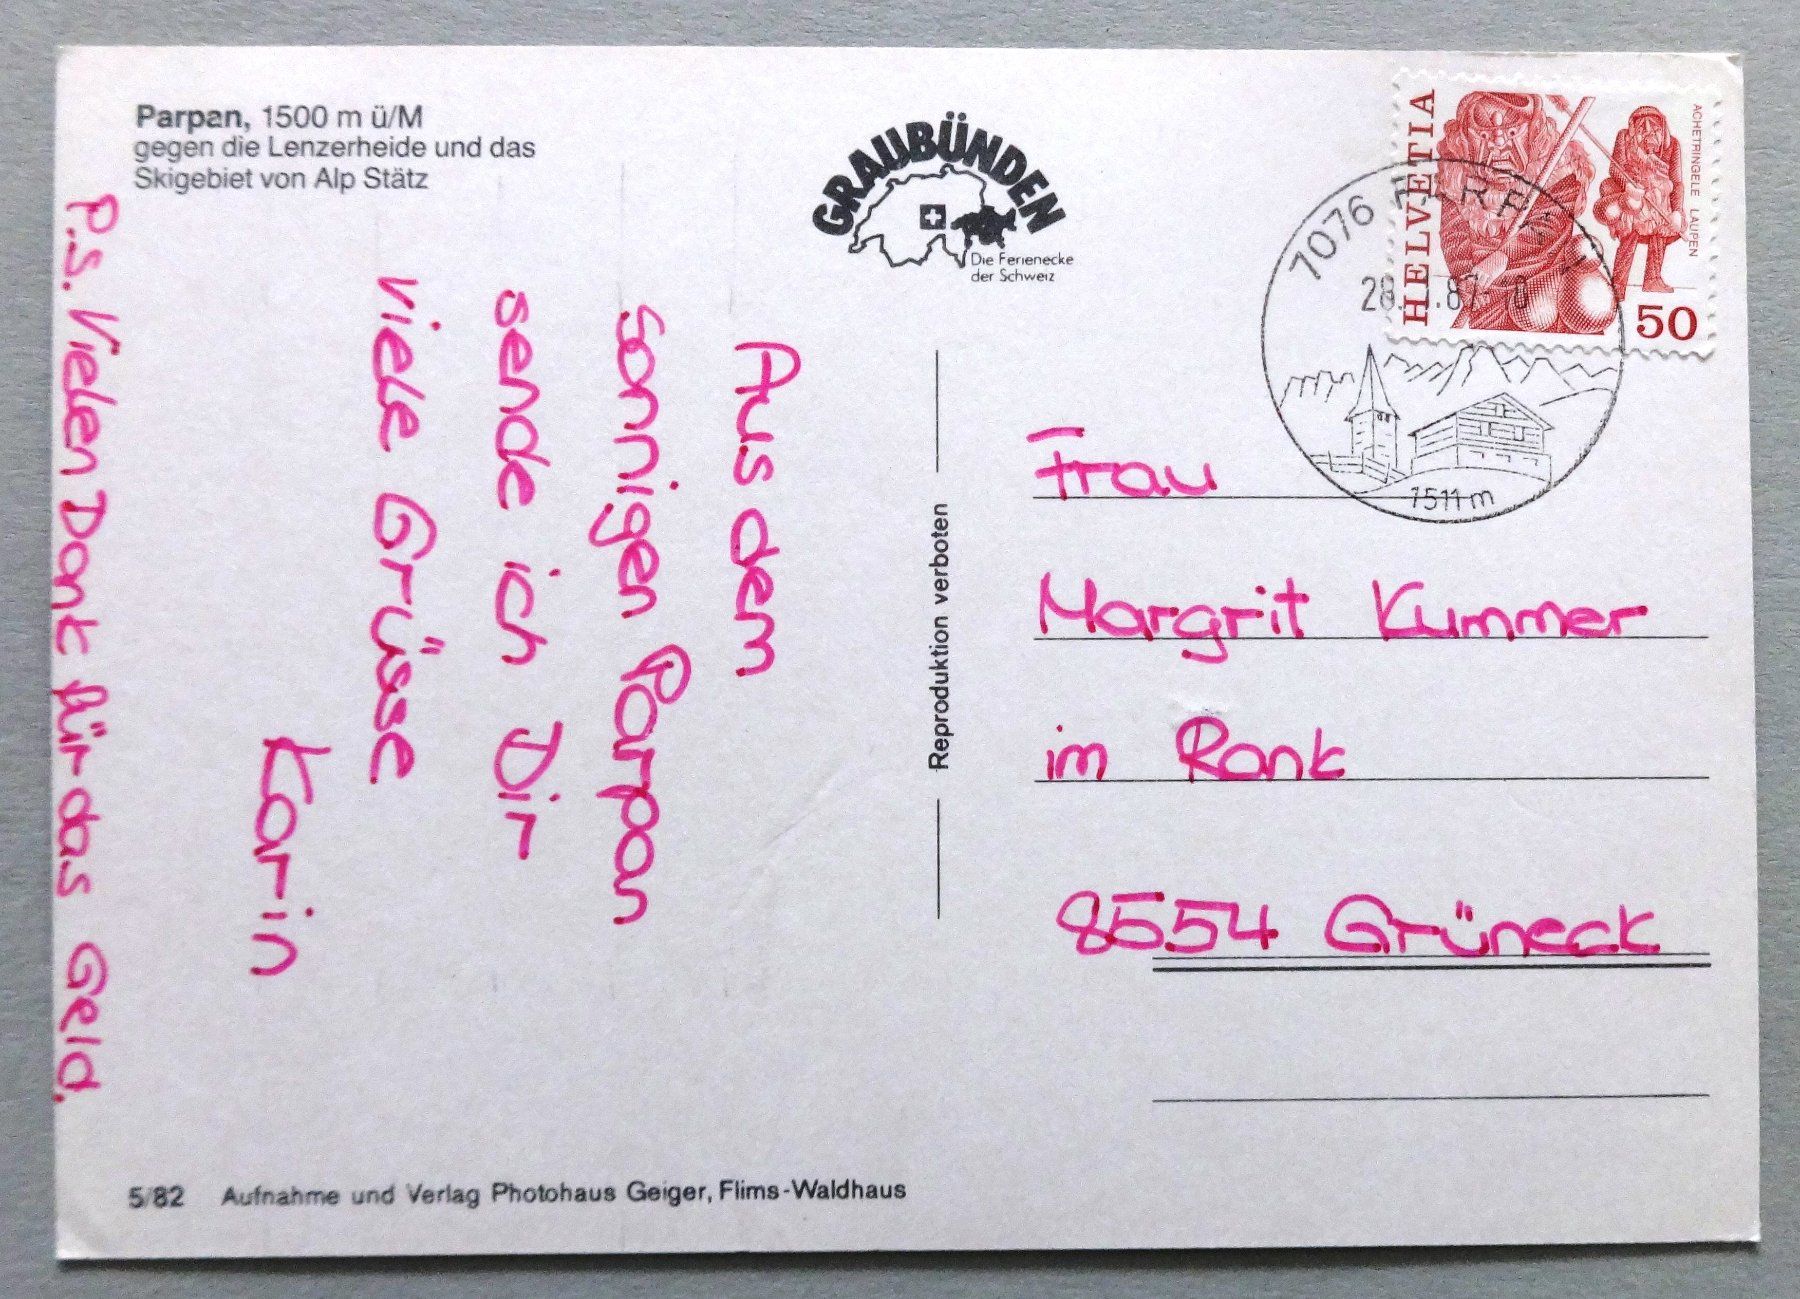 Parpan, 1500 m ü/M
gegen die Lenzerheide und das
Skigebiet von Alp Stätz
GRAUBÜNDEN
Die Ferienecke
der Schweiz
HELVETIA
ACHETRINGELE LAUPEN
50
7076 PARPAN
1511 m
Aus dem
sonnigen Parpan
sende ich Dir
viele Grüsse
Karin
P.S. Vielen Dank für das Geld.
Reproduktion verboten
Frau
Margrit Kummer
im Rank
8554 Grüneck
5/82 Aufnahme und Verlag Photohaus Geiger, Flims-Waldhaus